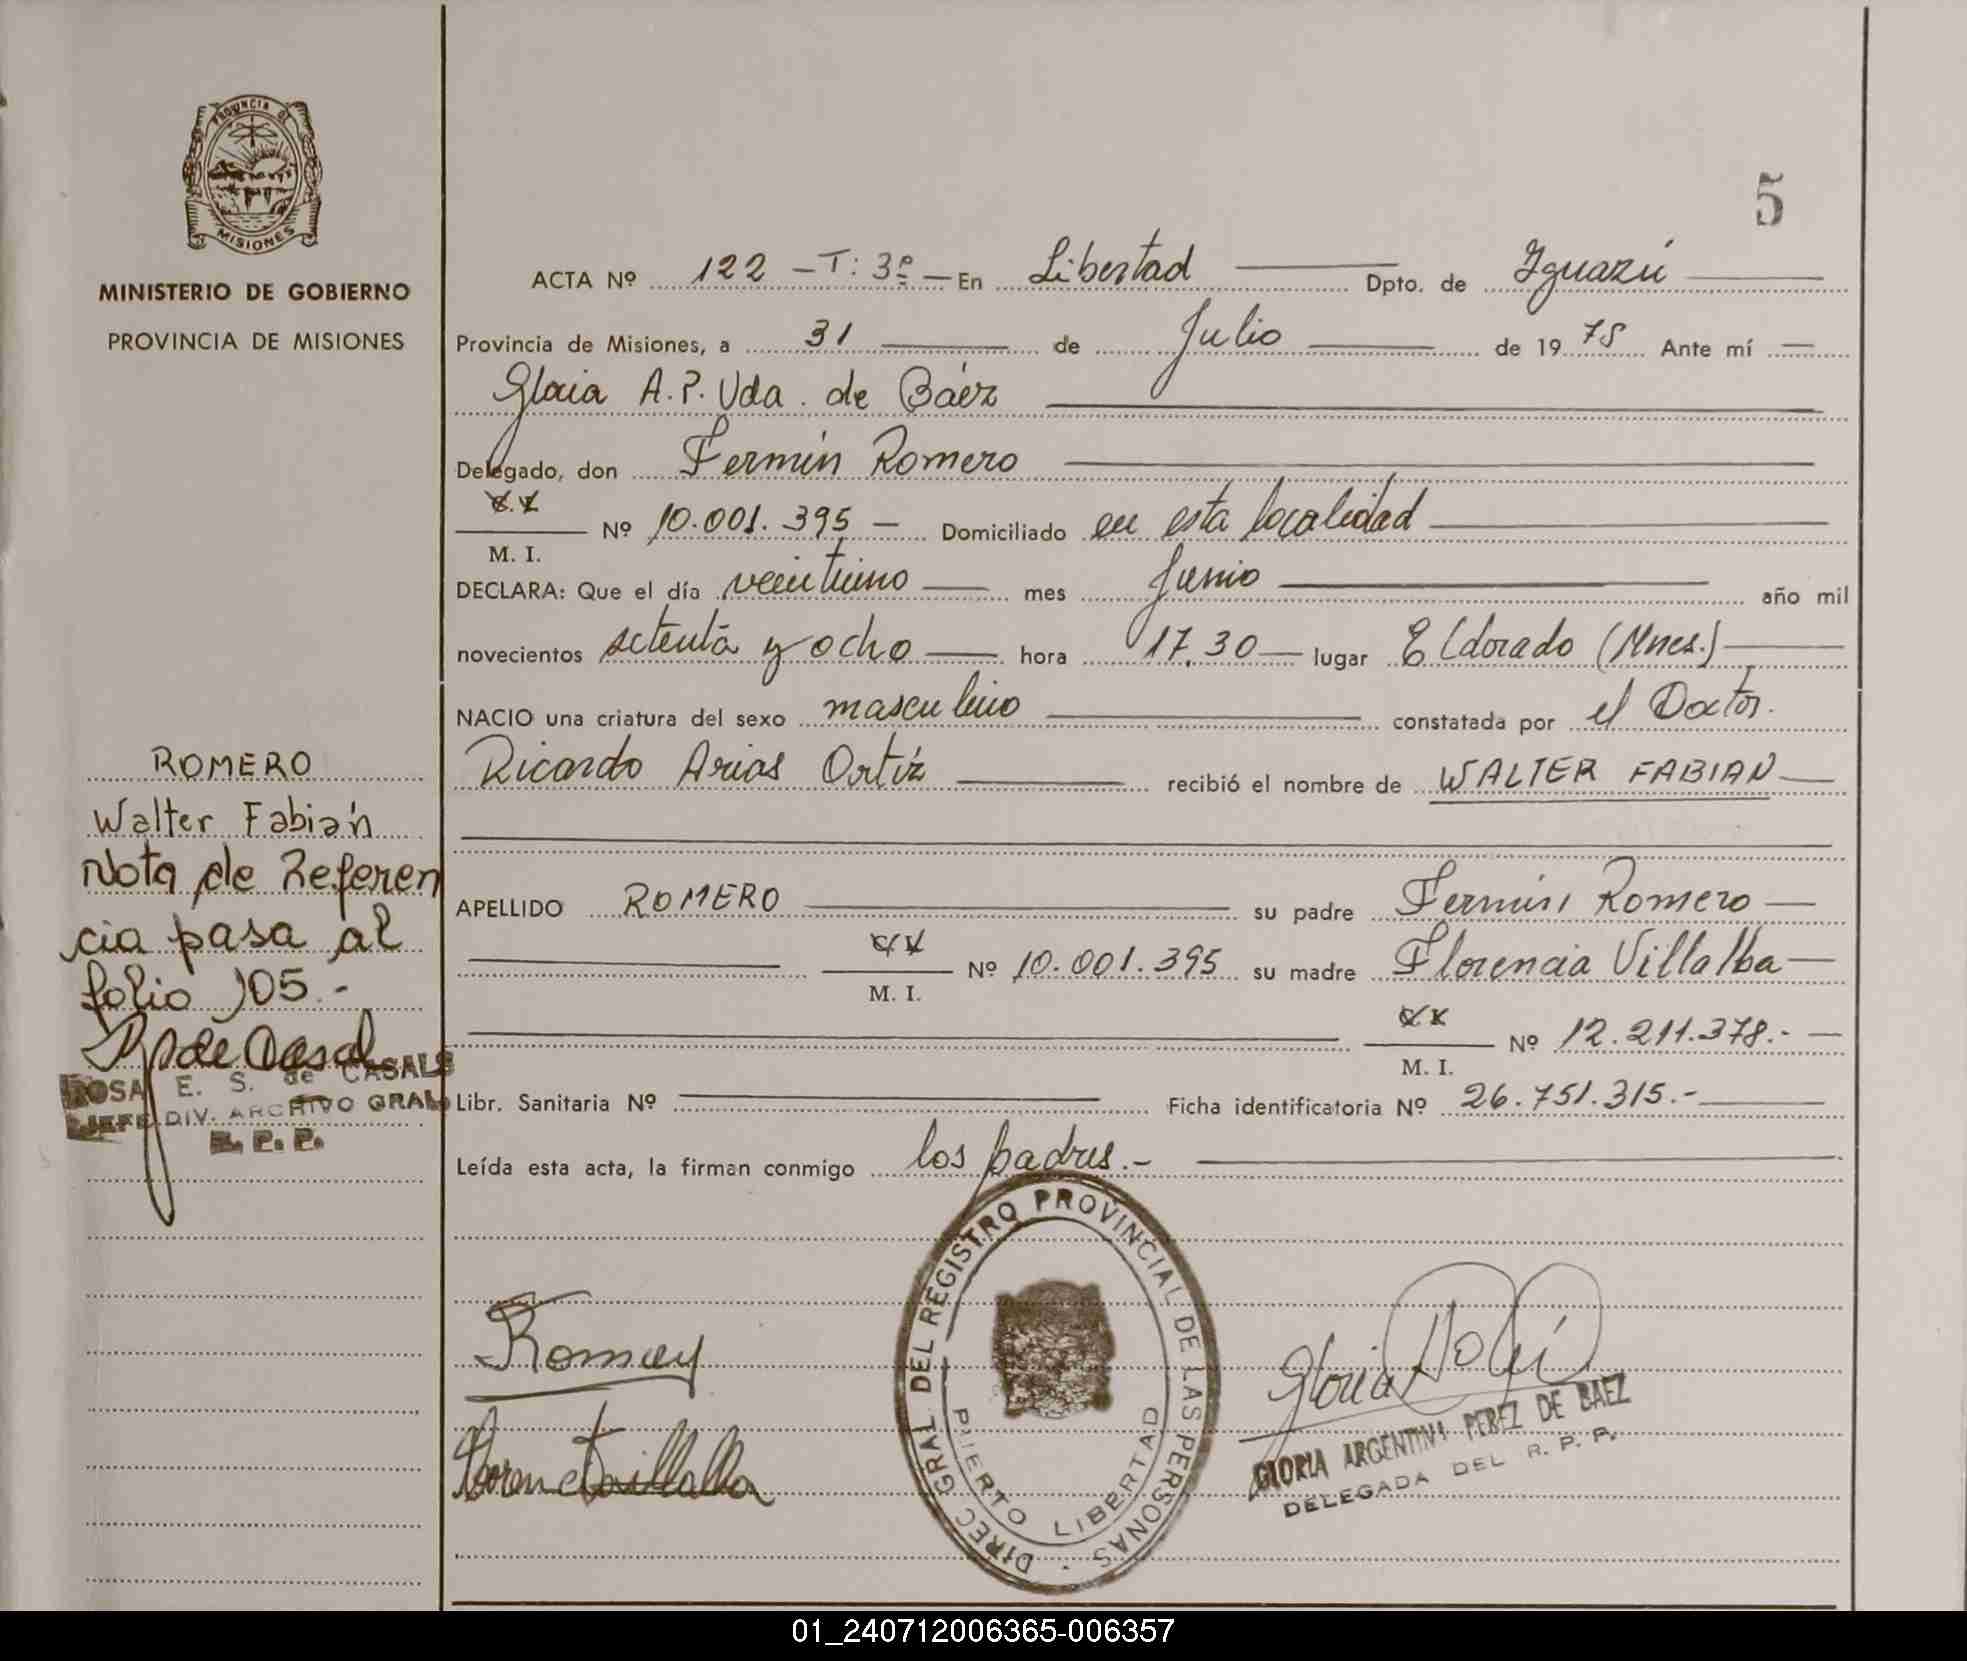 PROVINCIA DE
MISIONES
MINISTERIO DE GOBIERNO
PROVINCIA DE MISIONES
ROMERO
Walter Fabián
Nota de Referen
cia pasa al
folio 105.-
ROSA E. S. de CASALS
JEFE DIV. ARCHIVO GRAL
R. P. P.
5
ACTA Nº 122 - T: 3º - En Libertad Dpto. de Iguazú
Provincia de Misiones, a 31 de Julio de 1978 Ante mí
Gloria A. P. Vda. de Báez
Delegado, don Fermín Romero
C.I.
M. I. Nº 10.001.395 - Domiciliado en esta localidad
DECLARA: Que el día veintiuno mes Junio año mil
novecientos setenta y ocho hora 17,30 lugar Eldorado (Mnes.)
NACIO una criatura del sexo masculino constatada por el Doctor.
Ricardo Arias Ortíz recibió el nombre de WALTER FABIAN
APELLIDO ROMERO su padre Fermín Romero
M. I. Nº 10.001.395 su madre Florencia Villalba
M. I. Nº 12.211.378.-
Libr. Sanitaria Nº Ficha identificatoria Nº 26.751.315.-
Leída esta acta, la firman conmigo los padres.-
DIREC. GRAL. DEL REGISTRO PROVINCIAL DE LAS PERSONAS
PUERTO LIBERTAD
GLORIA ARGENTINA PEREZ DE BAEZ
DELEGADA DEL R. P. P.
01_240712006365-006357